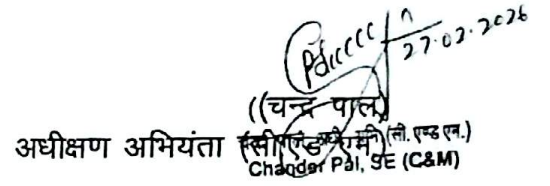 27.02.2026
((चन्द्र पाल)
अधीक्षण अभियंता (सीएंड एम) (सी. एण्ड एन.)
Chander Pal, SE (C&M)